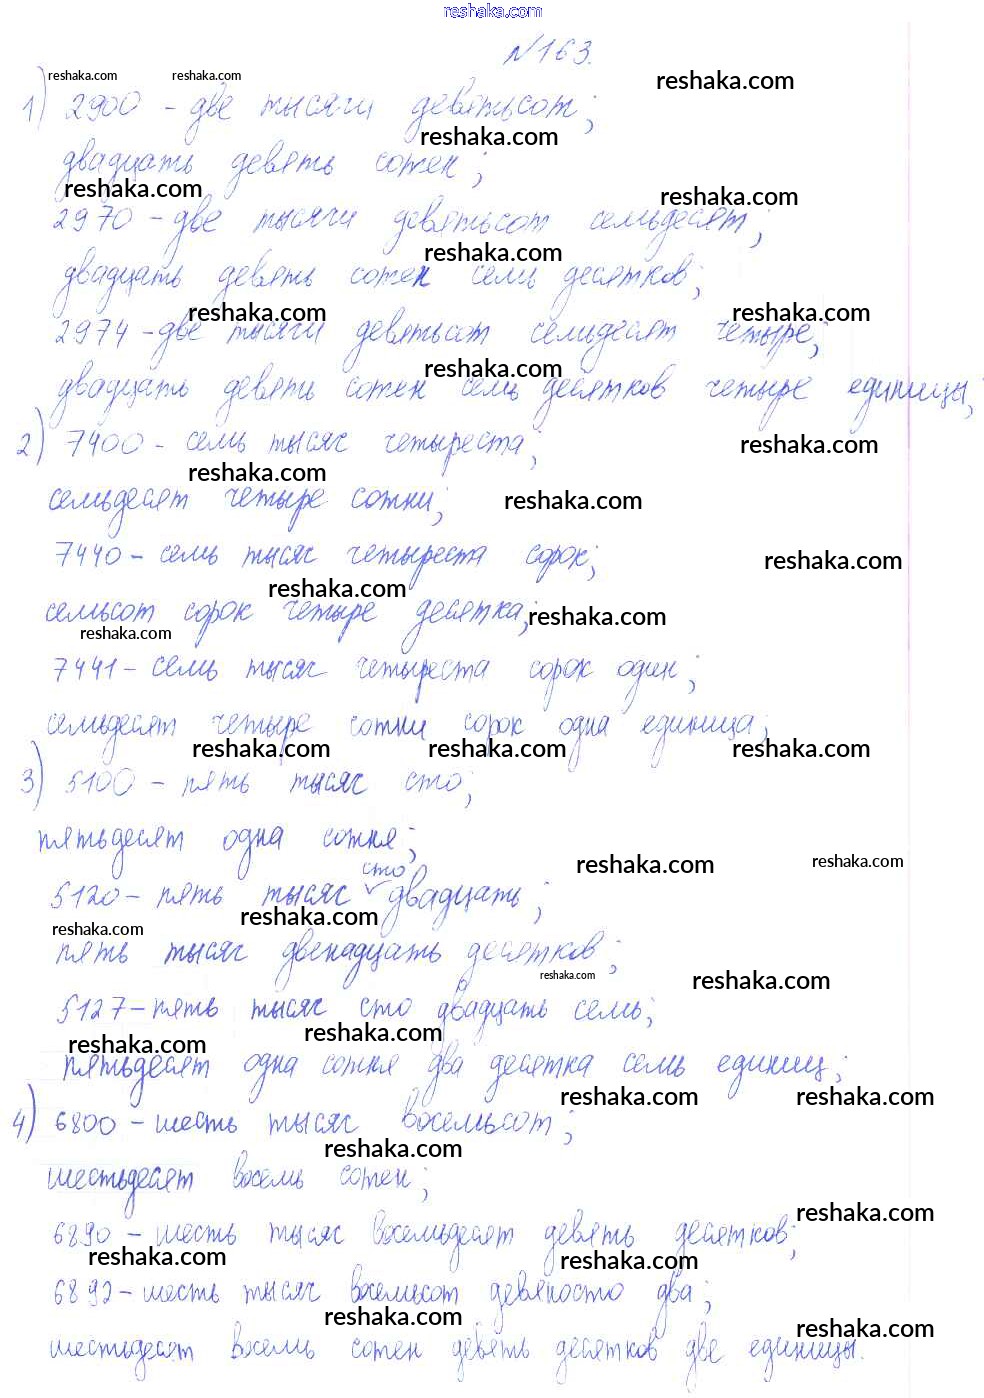 reshaka.com
№163.
reshaka.com reshaka.com reshaka.com
1) 2900 - две тысячи девятьсот;
reshaka.com
двадцать девять сотен;
reshaka.com reshaka.com
2970 - две тысячи девятьсот семьдесят;
reshaka.com
двадцать девять сотен семь десятков;
reshaka.com reshaka.com
2974 - две тысячи девятьсот семьдесят четыре;
reshaka.com
двадцать девять сотен семь десятков четыре единицы;
2) 7400 - семь тысяч четыреста;
reshaka.com
reshaka.com
семьдесят четыре сотни;
reshaka.com
7440 - семь тысяч четыреста сорок;
reshaka.com
reshaka.com
семьсот сорок четыре десятка;
reshaka.com
reshaka.com
7441 - семь тысяч четыреста сорок один;
семьдесят четыре сотни сорок одна единица;
reshaka.com reshaka.com reshaka.com
3) 5100 - пять тысяч сто;
пятьдесят одна сотня;
reshaka.com reshaka.com
сто
5120 - пять тысяч двадцать;
reshaka.com
reshaka.com
пять тысяч двенадцать десятков;
reshaka.com reshaka.com
5127 - пять тысяч сто двадцать семь;
reshaka.com reshaka.com
пятьдесят одна сотня два десятка семь единиц;
reshaka.com reshaka.com
4) 6800 - шесть тысяч восемьсот;
reshaka.com
шестьдесят восемь сотен;
reshaka.com
6890 - шесть тысяч восемьдесят девять десятков;
reshaka.com reshaka.com
6892 - шесть тысяч восемьсот девяносто два;
reshaka.com reshaka.com
шестьдесят восемь сотен девять десятков две единицы.